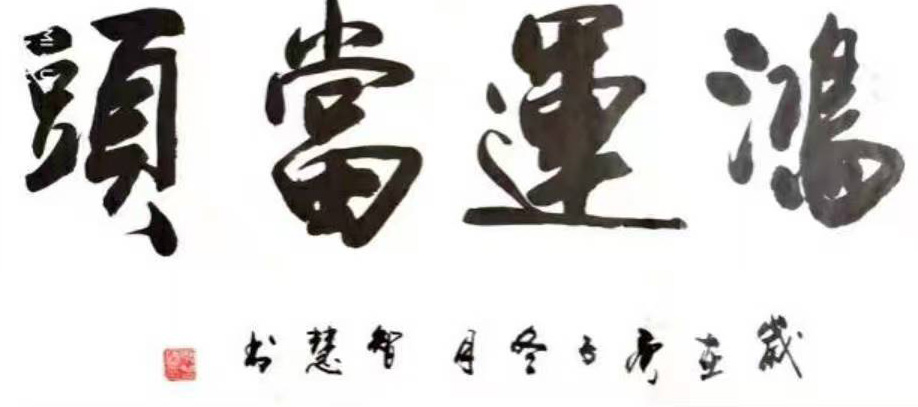 鴻運當頭
歲在庚子冬月智慧書